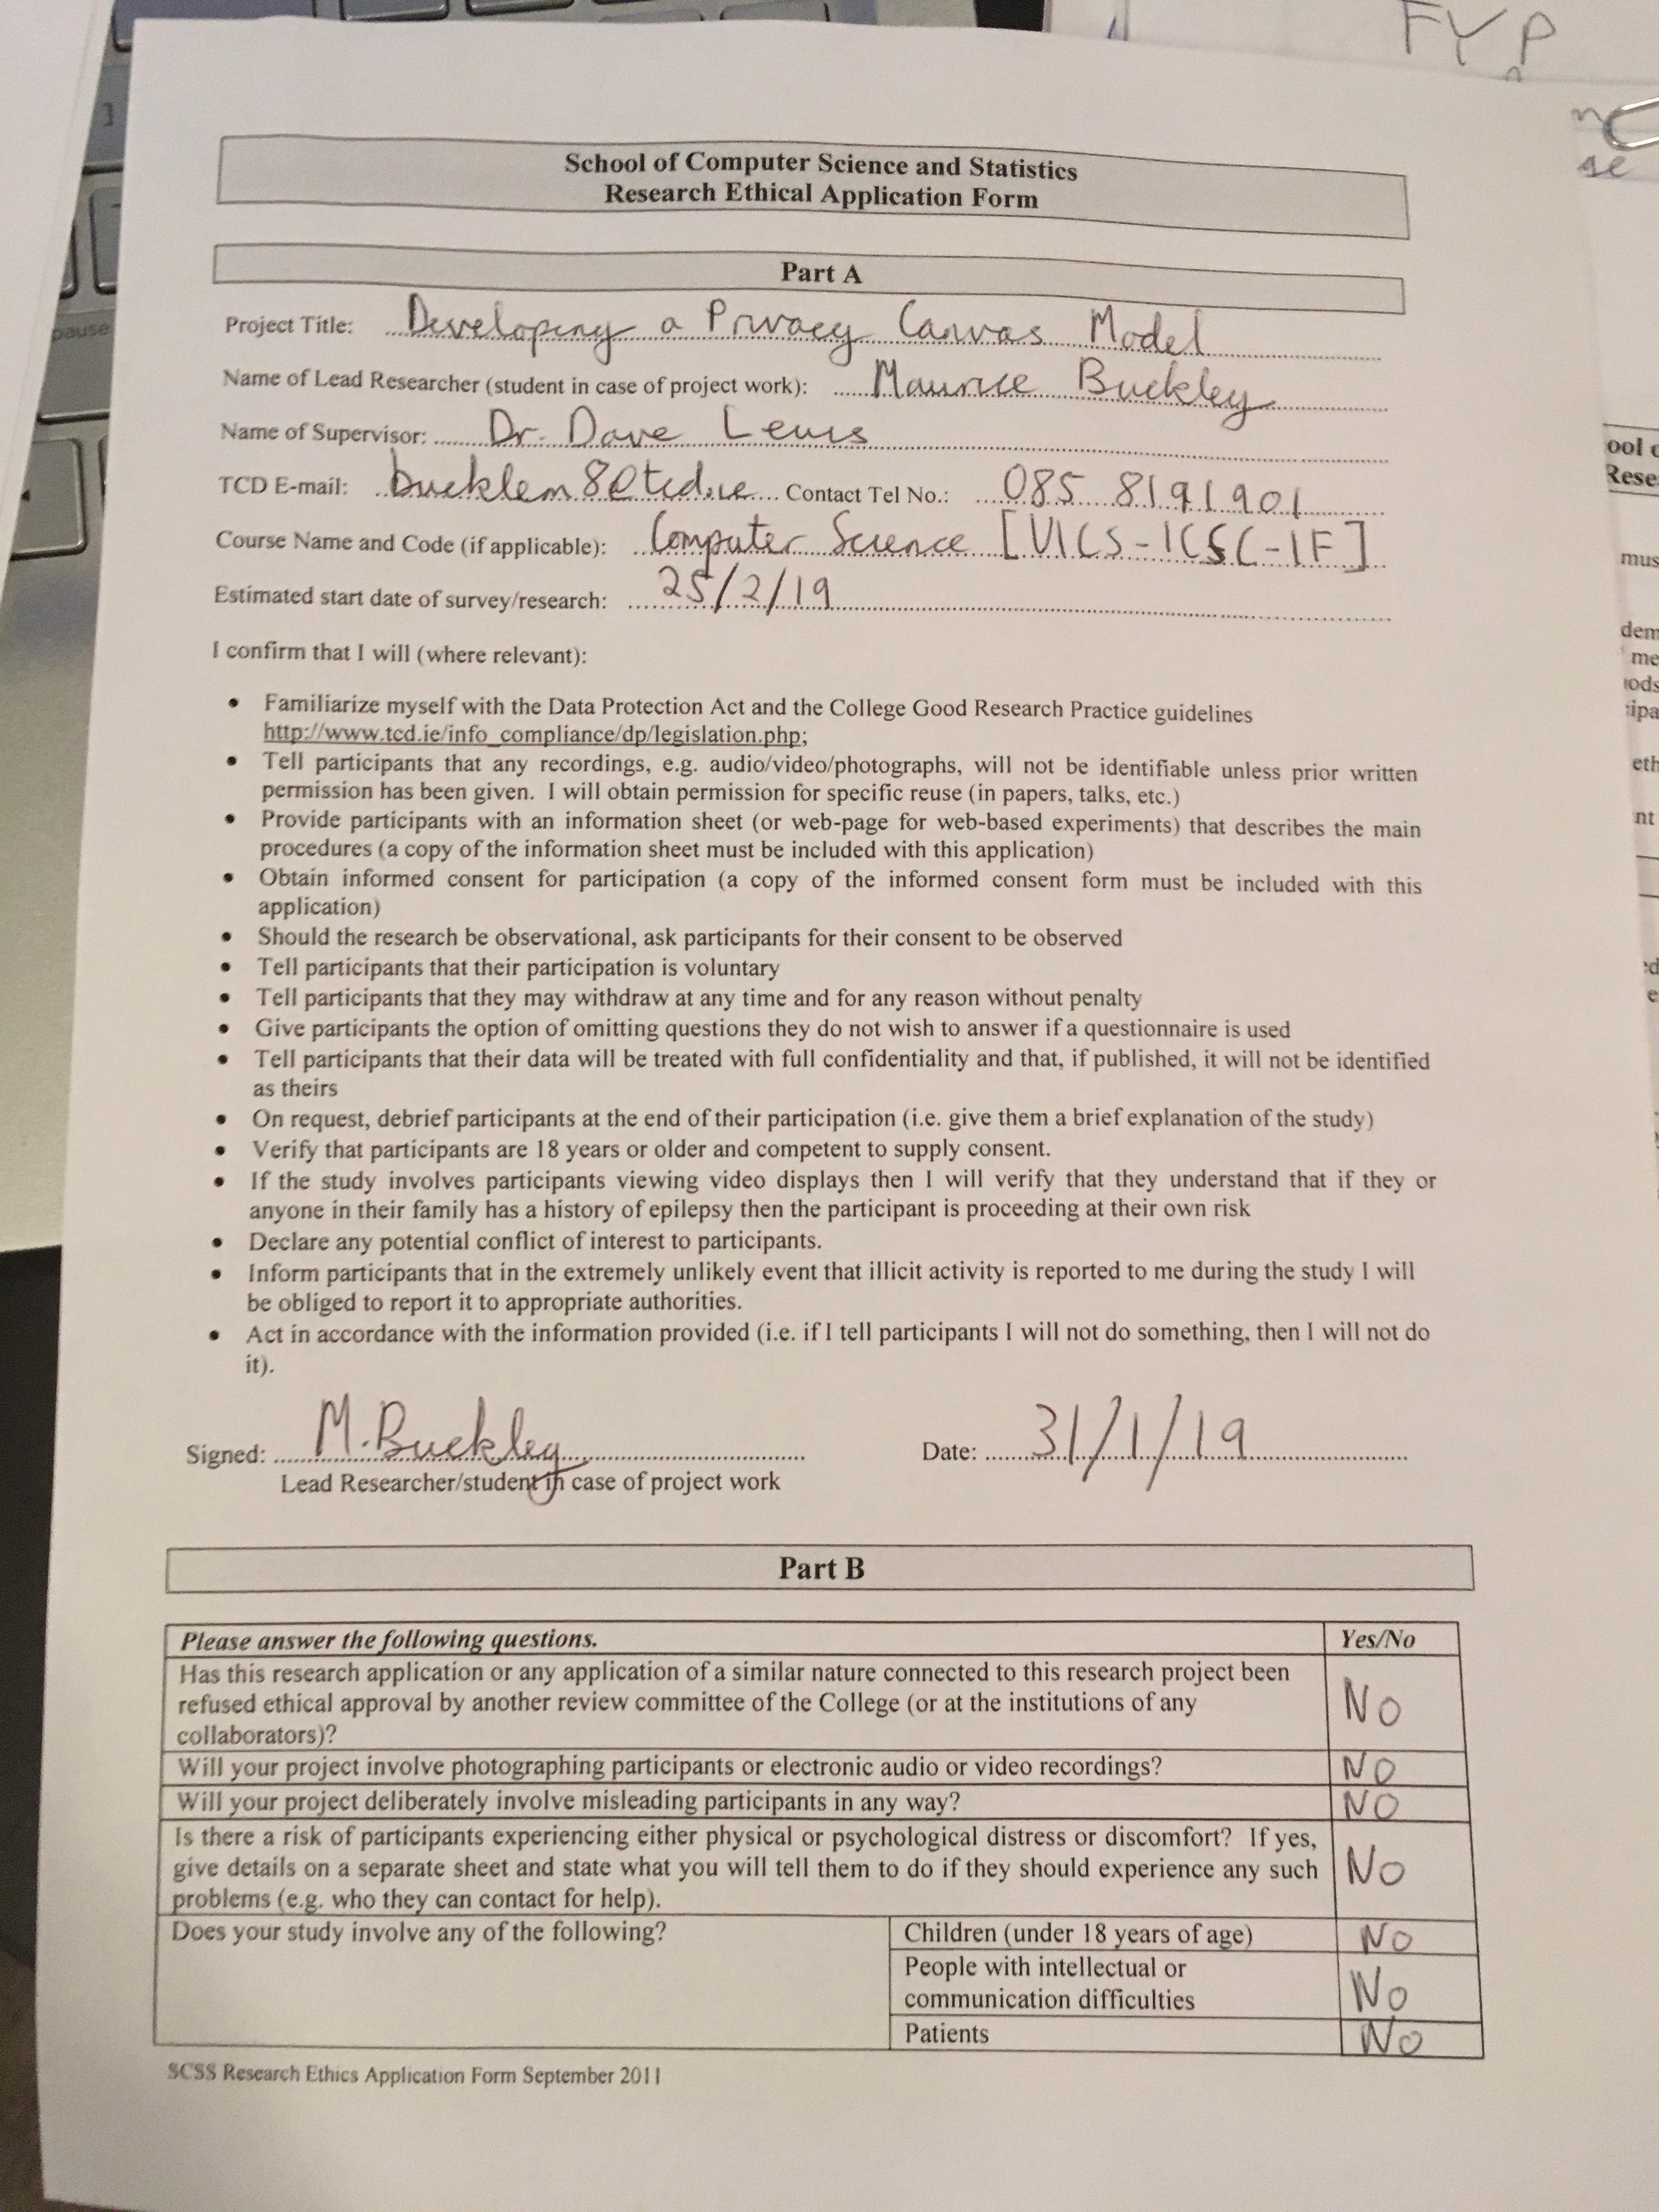 FYP
School of Computer Science and Statistics
Research Ethical Application Form
Part A
Project Title: Developing a Privacy Canvas Model
Name of Lead Researcher (student in case of project work): Maurice Buckley
Name of Supervisor: Dr. Dave Lewis
TCD E-mail: bucklem8@tcd.ie Contact Tel No.: 085 8191901
Course Name and Code (if applicable): Computer Science [UICS-1CSC-1F]
Estimated start date of survey/research: 25/2/19
I confirm that I will (where relevant):
• Familiarize myself with the Data Protection Act and the College Good Research Practice guidelines
http://www.tcd.ie/info_compliance/dp/legislation.php;
• Tell participants that any recordings, e.g. audio/video/photographs, will not be identifiable unless prior written
permission has been given. I will obtain permission for specific reuse (in papers, talks, etc.)
• Provide participants with an information sheet (or web-page for web-based experiments) that describes the main
procedures (a copy of the information sheet must be included with this application)
• Obtain informed consent for participation (a copy of the informed consent form must be included with this
application)
• Should the research be observational, ask participants for their consent to be observed
• Tell participants that their participation is voluntary
• Tell participants that they may withdraw at any time and for any reason without penalty
• Give participants the option of omitting questions they do not wish to answer if a questionnaire is used
• Tell participants that their data will be treated with full confidentiality and that, if published, it will not be identified
as theirs
• On request, debrief participants at the end of their participation (i.e. give them a brief explanation of the study)
• Verify that participants are 18 years or older and competent to supply consent.
• If the study involves participants viewing video displays then I will verify that they understand that if they or
anyone in their family has a history of epilepsy then the participant is proceeding at their own risk
• Declare any potential conflict of interest to participants.
• Inform participants that in the extremely unlikely event that illicit activity is reported to me during the study I will
be obliged to report it to appropriate authorities.
• Act in accordance with the information provided (i.e. if I tell participants I will not do something, then I will not do
it).
Signed: M. Buckley Date: 31/1/19
Lead Researcher/student in case of project work
Part B
Please answer the following questions. Yes/No
Has this research application or any application of a similar nature connected to this research project been
refused ethical approval by another review committee of the College (or at the institutions of any
collaborators)? No
Will your project involve photographing participants or electronic audio or video recordings? No
Will your project deliberately involve misleading participants in any way? No
Is there a risk of participants experiencing either physical or psychological distress or discomfort? If yes,
give details on a separate sheet and state what you will tell them to do if they should experience any such
problems (e.g. who they can contact for help). No
Does your study involve any of the following? Children (under 18 years of age) No
People with intellectual or
communication difficulties No
Patients No
SCSS Research Ethics Application Form September 2011
pause